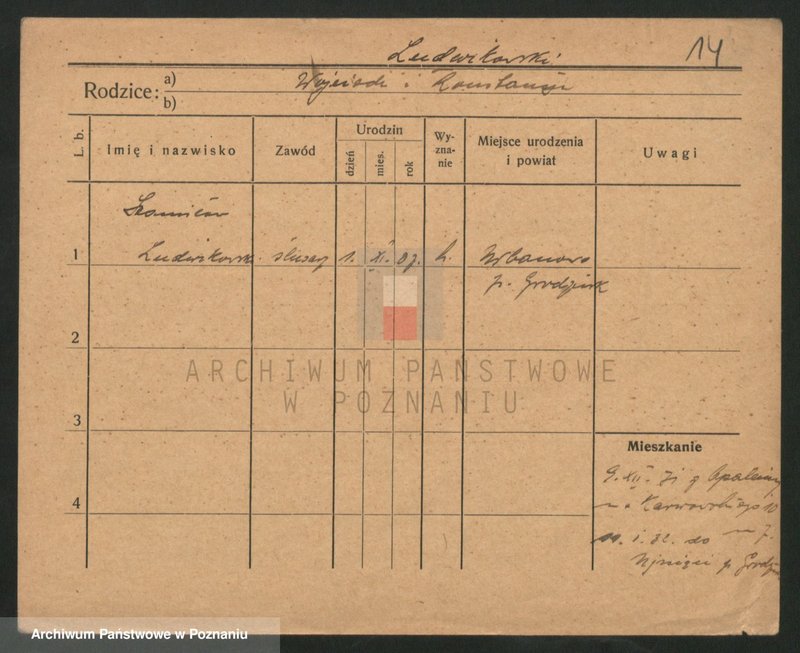 Ludwikowski
14
Rodzice:
a)
b)
Wojciech i Konstancja
L. b.
Imię i nazwisko
Zawód
Urodzin
dzień
mies.
rok
Wy-
zna-
nie
Miejsce urodzenia
i powiat
Uwagi
1
Ludwikowski ślusarz 1. XI. 07. k. Urbanowo
p. Grodzisk
2
ARCHIWUM PAŃSTWOWE
W POZNANIU
3
Mieszkanie
9. XII. 31 z Opalenicy
Karwowskiego 10
4
m 7.
11. I. 32. do
p. Grodzisk
Archiwum Państwowe w Poznaniu